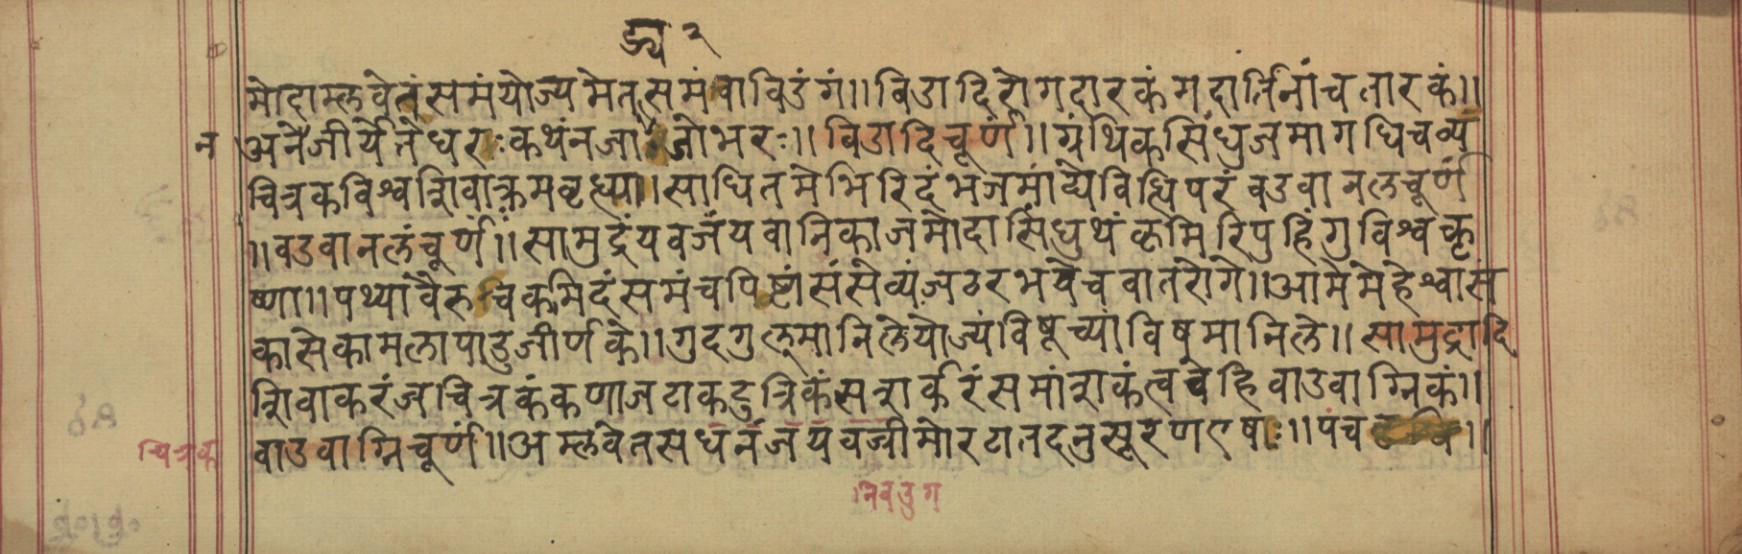 ड्य २
मोदाम्लवेतं समंयोज्यमेतत्समं वाविडंगं॥ विडादि रोगदारकं गदार्तिनांच तारकं॥
न
अनेजीर्येतेधरः कथंनजा जोभरः॥ विडादिचूर्णं॥ ग्रंथिकसिंधुजमागधिचव्य
चित्रकविश्वशिवाक्रमवृद्ध्या॥ साधितमेभिरिदंभजमांद्येविह्निपरंवडवानलचूर्णं
॥वडवानलंचूर्णं॥ सामुद्रंयवजंयवानिकाजमोदासिंधुथंकृमिरिपुहिंगुविश्वकृ
ष्णा॥ पथ्यांवैरुचिकमिदंसमंचपिष्टांसंसेव्यंजठरभवेचवातरोगे॥ आमेमेहेश्वास
कासेकामलापांडुजीर्णके॥ गुदगुल्मानिलेयोज्यंविषूच्यांविषमानिले॥ सामुद्रादि
शिवाकरंजचित्रकंकणाजटाकटुत्रिकंसशर्करंसमांशकंत्ववेहिवाडवाग्निकं॥
वाडवाग्निचूर्णं॥ अम्लवेतसधनंजयवज्रीमोरटातदनुसूरणएषाः॥ पंच
चित्रक
निवडुग